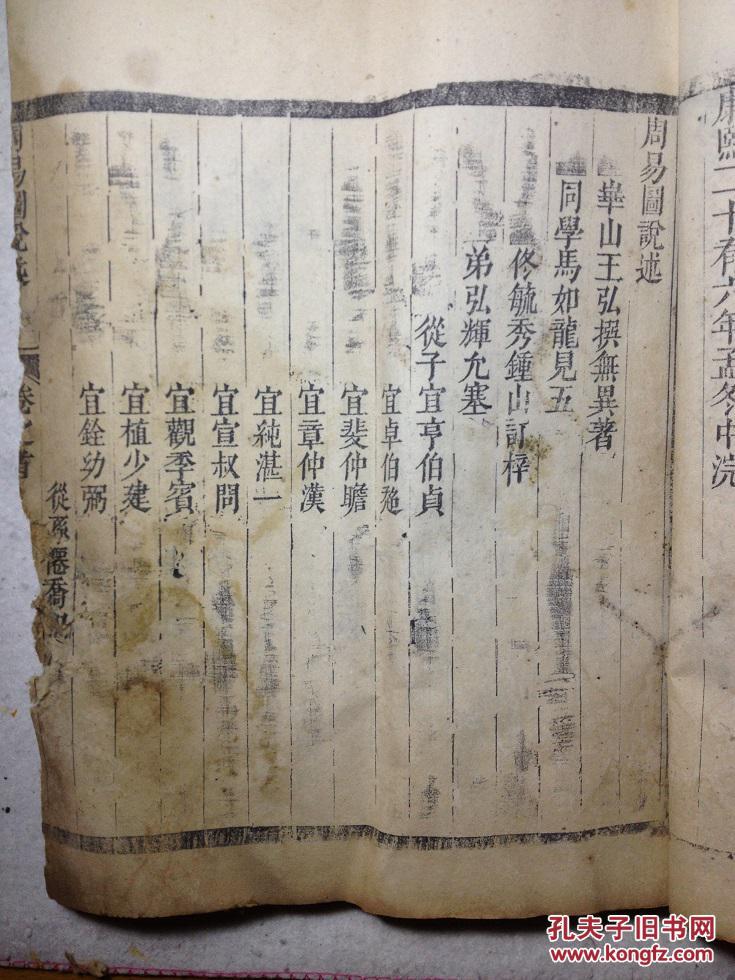 康熙二十有六年孟冬中浣
周易圖說述
華山王弘撰無異著
同學馬如龍見五
佟毓秀鍾山訂梓
弟弘輝允塞
從子宜亨伯貞
宜卓伯
宜斐仲瞻
宜章仲漢
宜純湛一
宜宣叔問
宜觀季賓
宜植少建
宜銓幼弼
從孫
周易圖說述
卷之首
孔夫子旧书网
www.kongfz.com